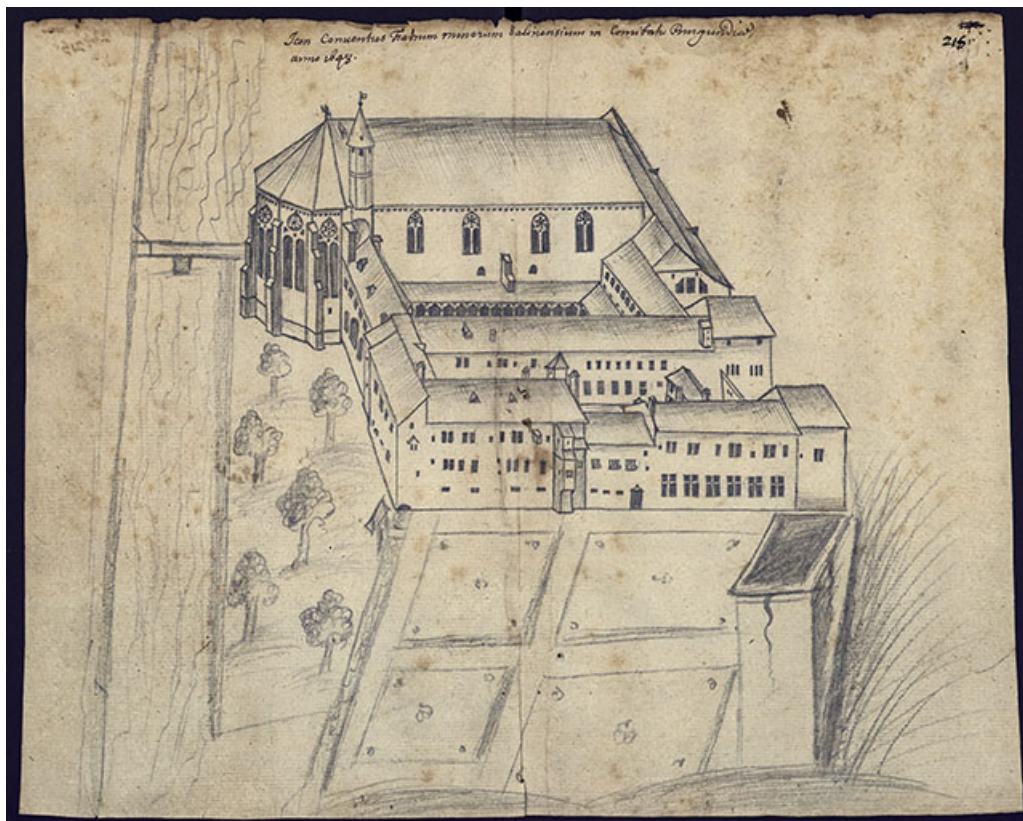 Icon Conventus Fratrum minorum Salinensium in Comitatu Burgundiæ
anno 1645.
215